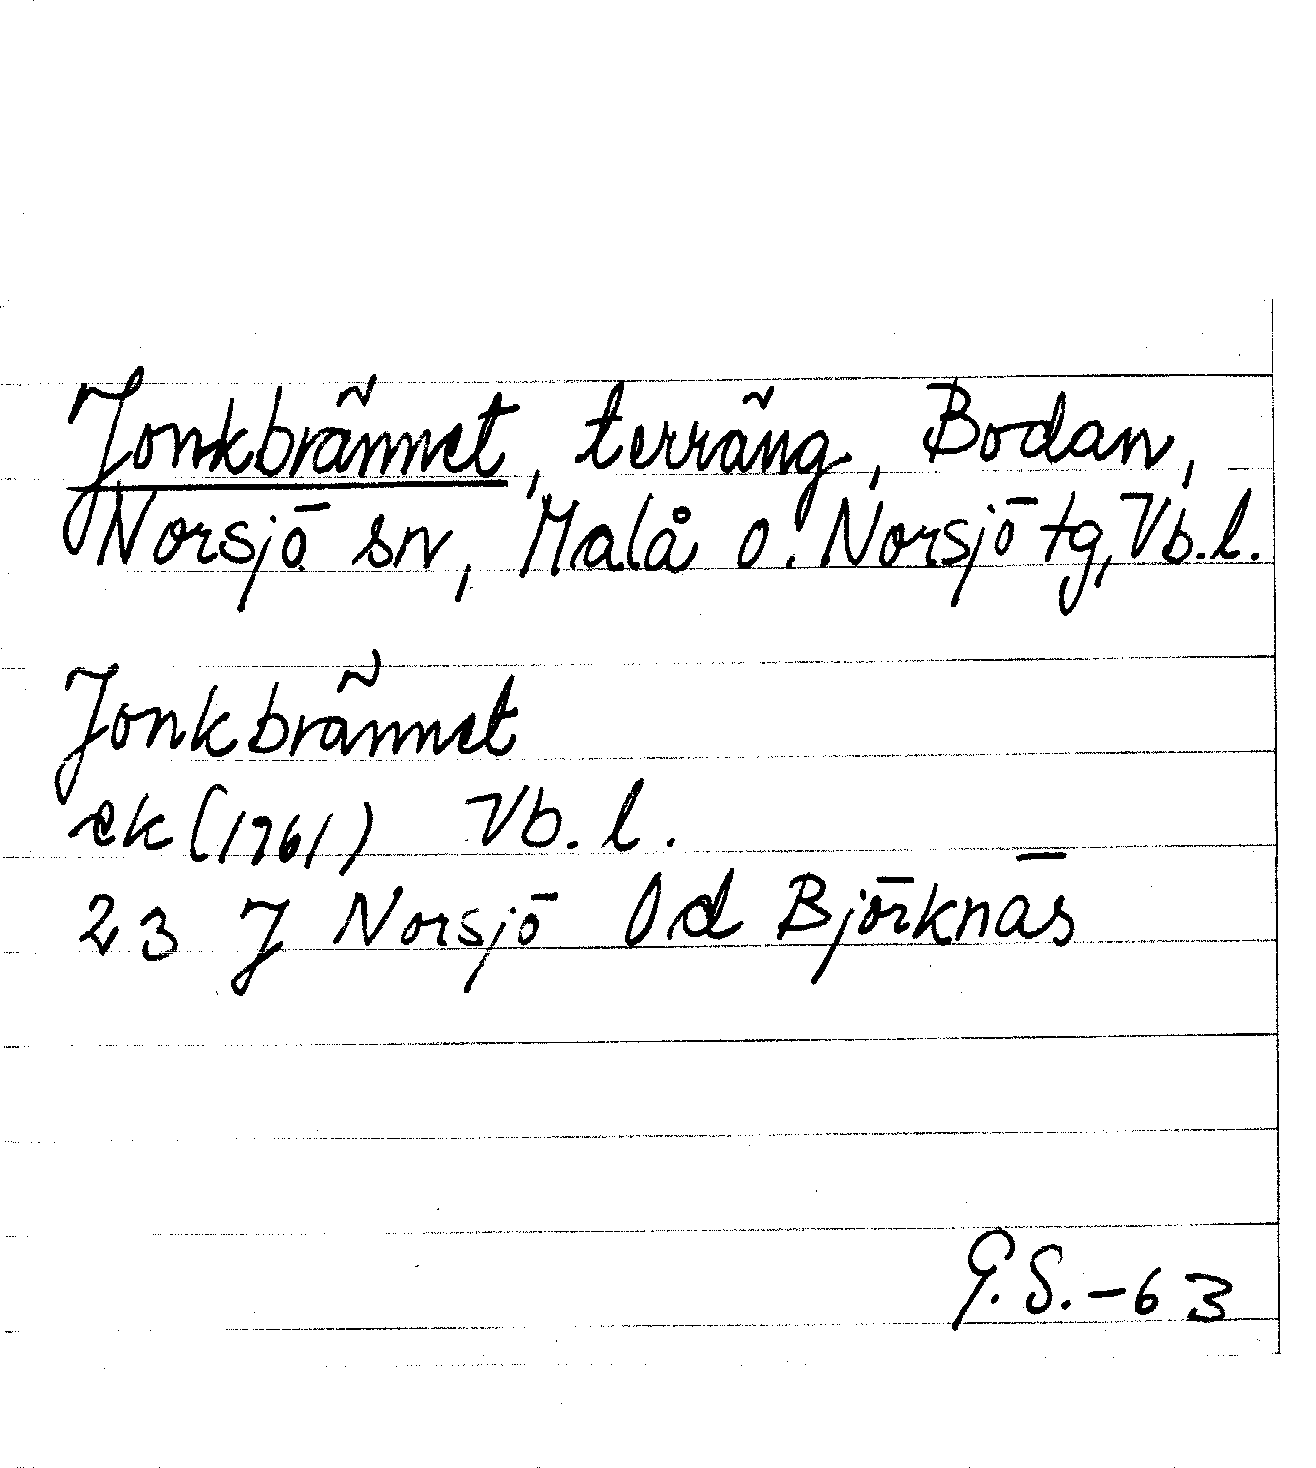 Jonkbrännet, terräng, Bodan,
Norsjö sn, Malå o. Norsjö tg, Vb.l.
Jonkbrännet
ek (1761) Vb. l.
23 J Norsjö 0d Björknäs
G.S.-63